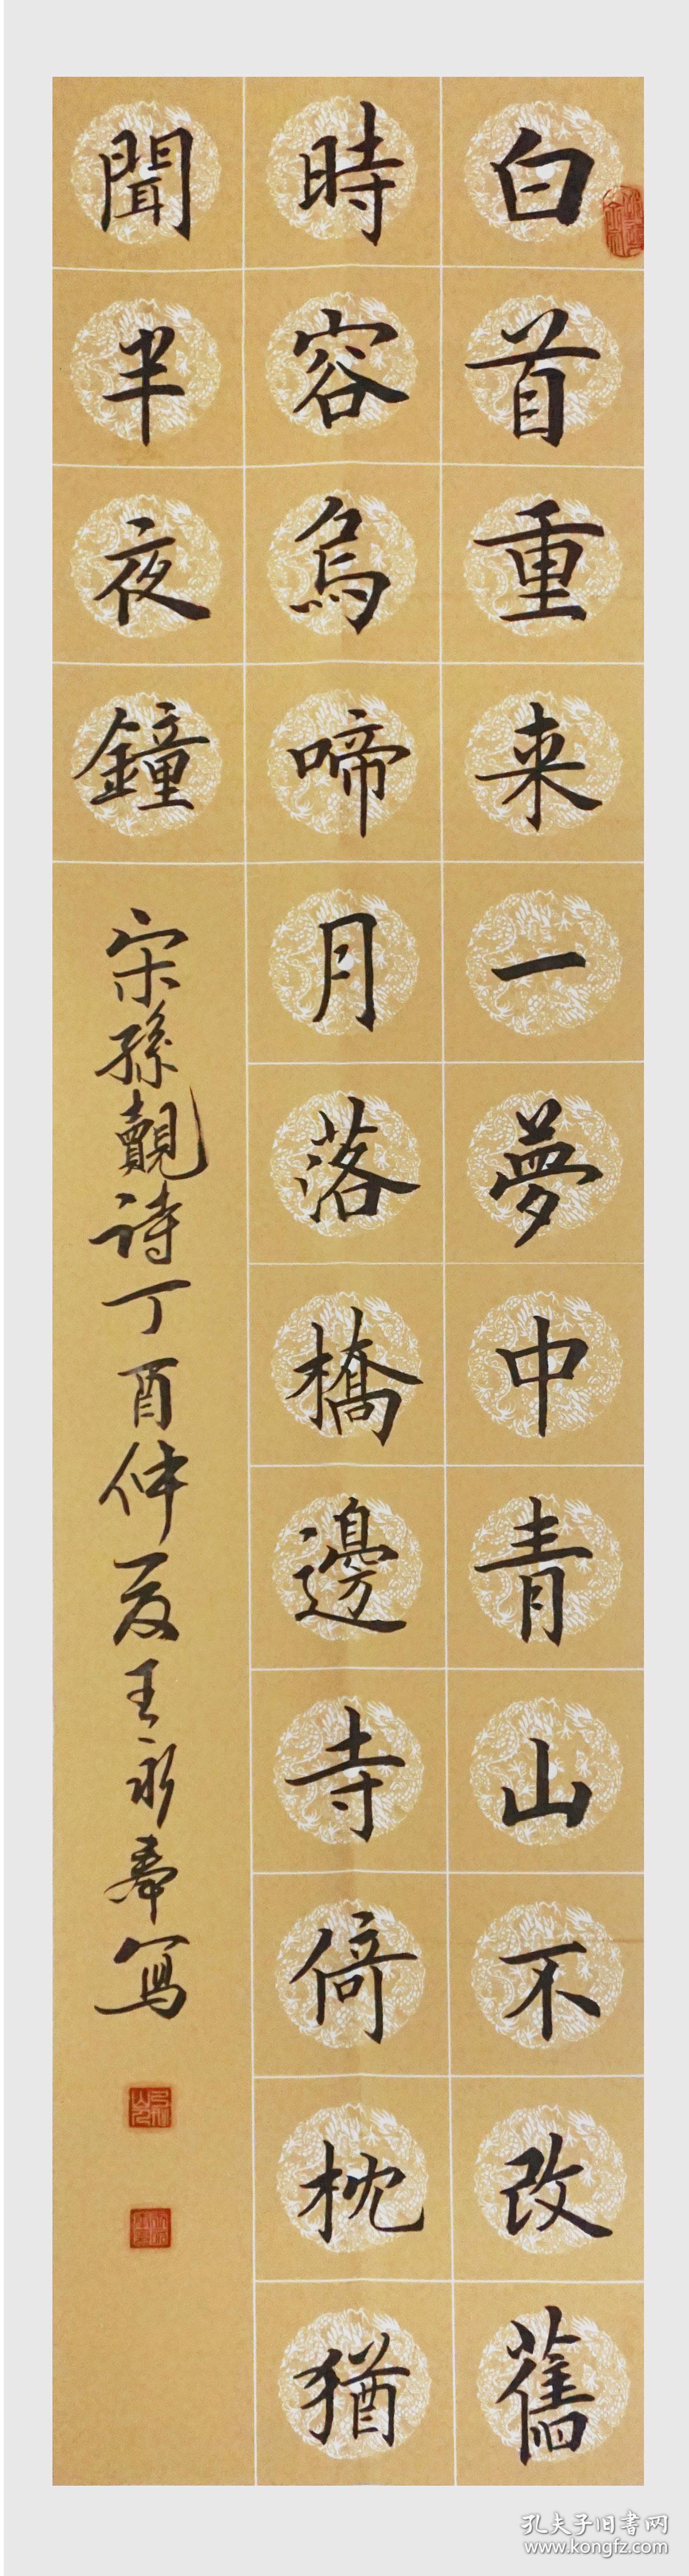 白首重来一夢中青山不改舊
時容烏啼月落橋邊寺倚枕猶
聞半夜鐘
宋孫覿诗丁酉仲夏王永奉寫
孔夫子旧书网
www.kongfz.com